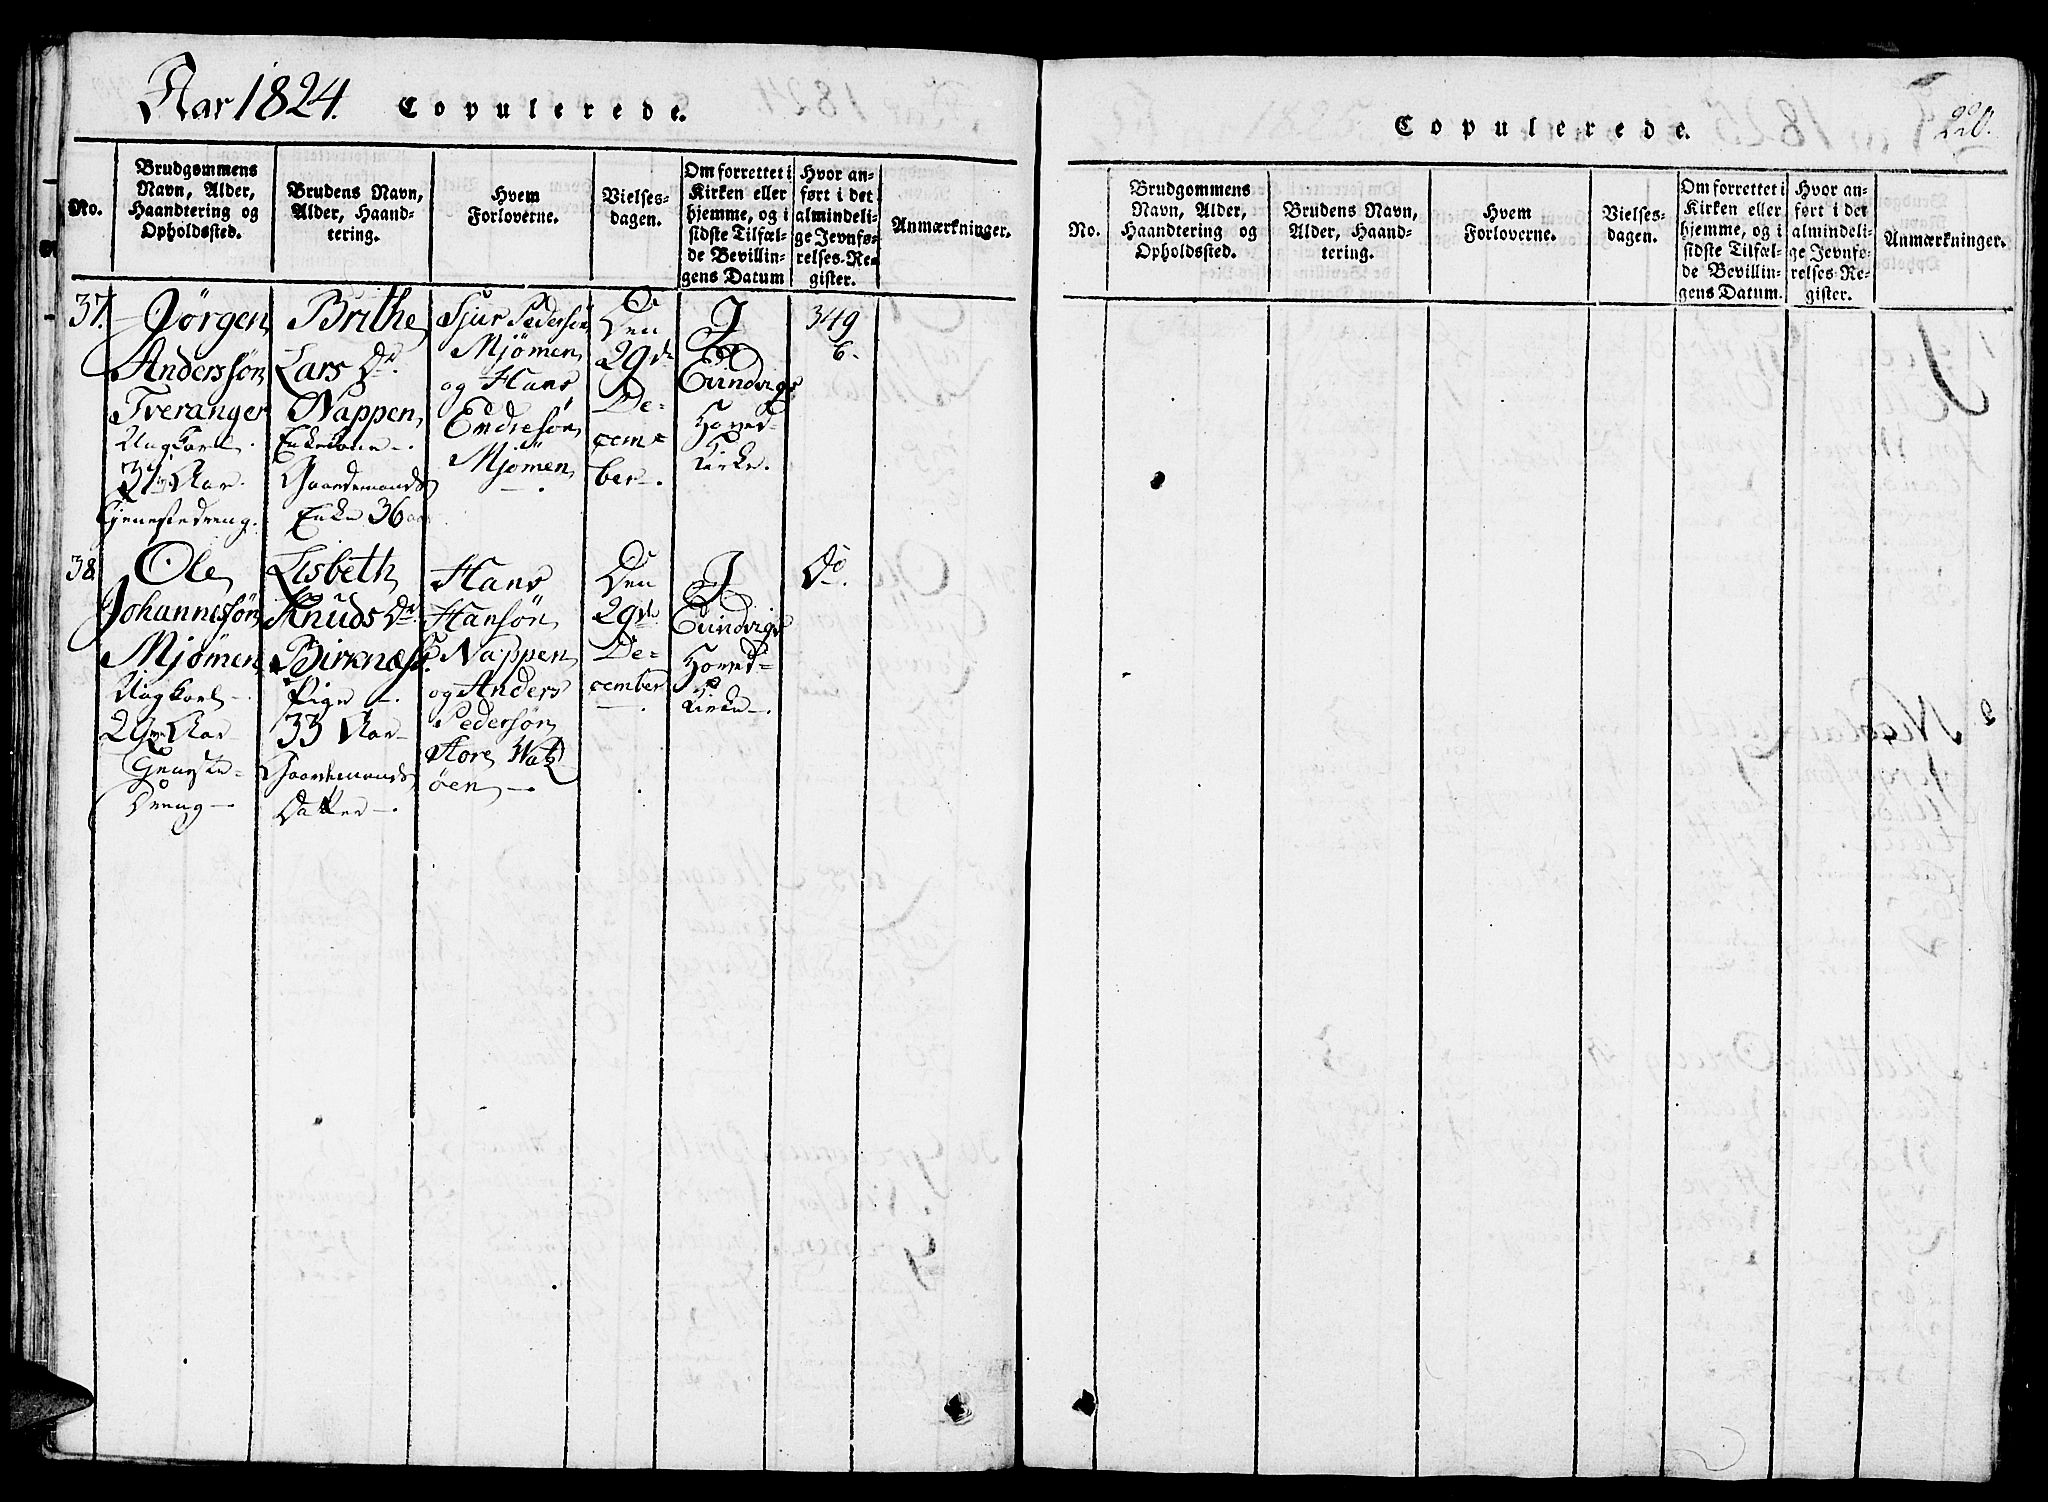 Aar 1824. Copulerede.
No.
Brudgommens
Navn, Alder,
Haandtering og
Opholdssted.
Brudens Navn,
Alder, Haand-
tering.
Hvem
Forloverne.
Vielses-
dagen.
Om forrettet i
Kirken eller
hjemme, og i
sidste Tilfæl-
de Bevillin-
gens Datum
Hvor an-
ført i det
almindeli-
ge Jevnfø-
relses-Re-
gister.
Anmærkninger.
37.
Jörgen
Anderssön
Tveranger
Ungkarl.
37 Aar.
Tjenestedreng.
Brithe
Lars Dr.
Nappen
Enkekone.
Gaardmands
Enke 36
Sjur Pedersön
Mjömen
og Hans
Endresön
Mjömen
Den
29de
De-
cem-
ber.
I
Eündvigs
Hoved-
Kirke.
349
6.
38.
Ole
Johannessön
Mjömen
Ungkarl
29 Aar
Tjeneste-
Dreng
Lisbeth
Knüds Dr.
Birknæss.
Pige
33 Aar
Gaardmands
Datter
Hans
Hansön
Nappen
og Anders
Pedersön
Store Watz
öen
Den
29de
De-
cember
I
Eündvigs
Hoved-
Kirke
Do.
Copulerede.
220.
No.
Brudgommens
Navn, Alder,
Haandtering og
Opholdssted.
Brudens Navn,
Alder, Haand-
tering.
Hvem
Forloverne.
Vielses-
dagen.
Om forrettet i
Kirken eller
hjemme, og i
sidste Tilfæl-
de Bevillin-
gens Datum.
Hvor an-
ført i det
almindeli-
ge Jevnfø-
relses-Re-
gister.
Anmærkninger.